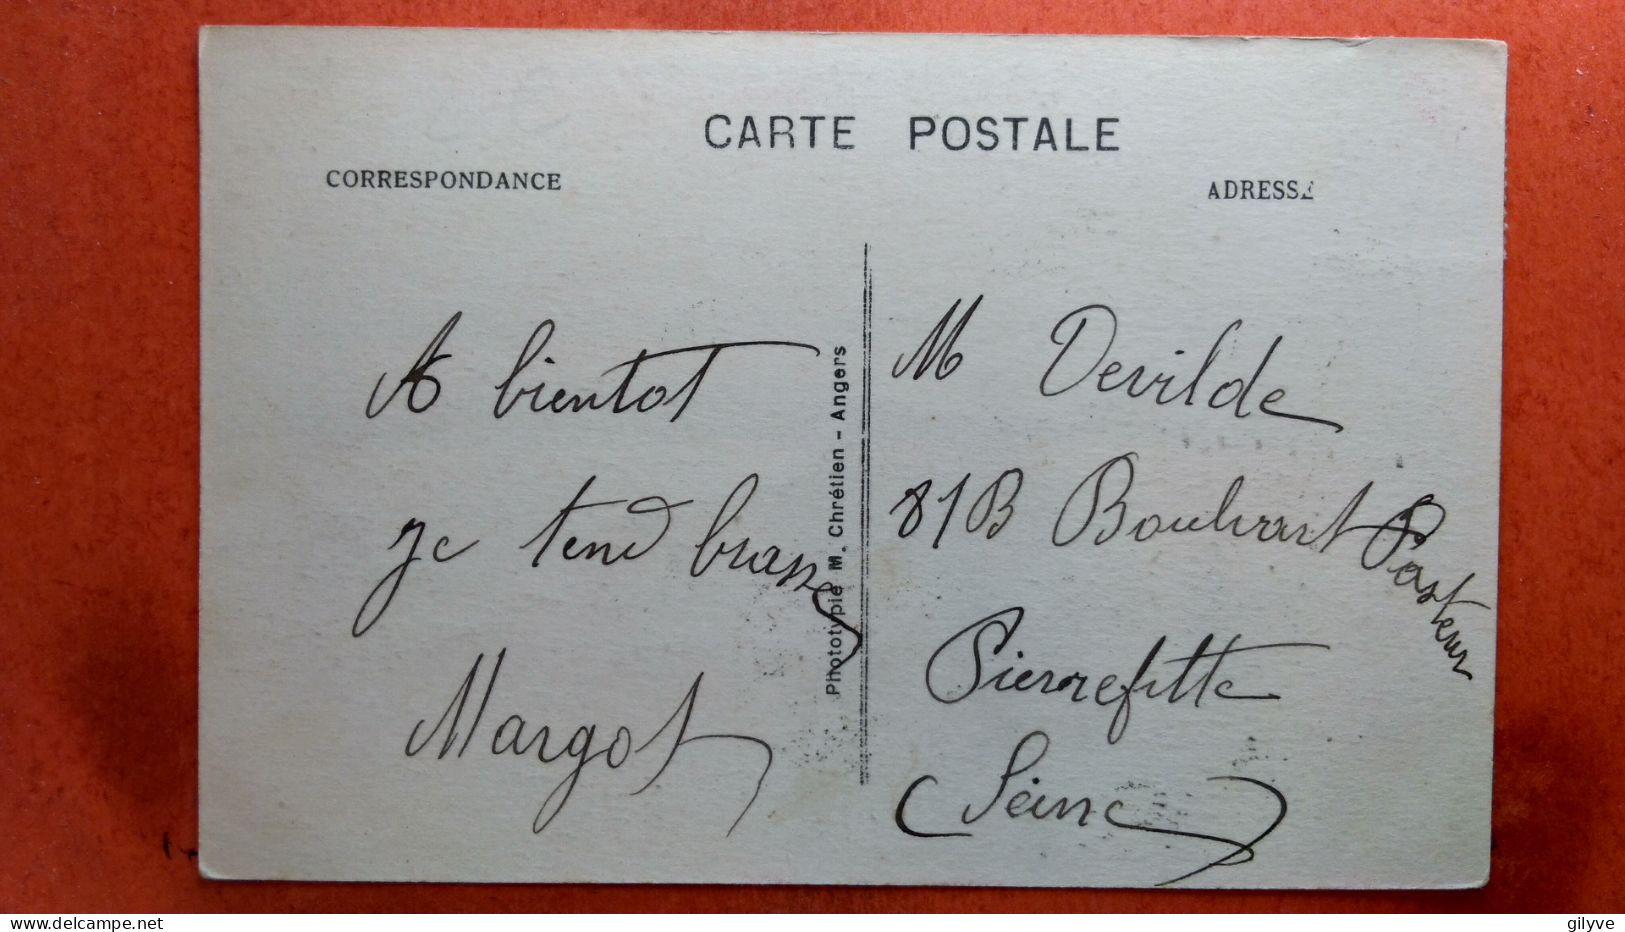 CARTE POSTALE
CORRESPONDANCE
ADRESSE
A bientot
je tend brasse
Margot
Phototypie M. Chrétien - Angers
M Devilde
81B Boulvart Pasteur
Pierrefitte
(Seine)
gilyve